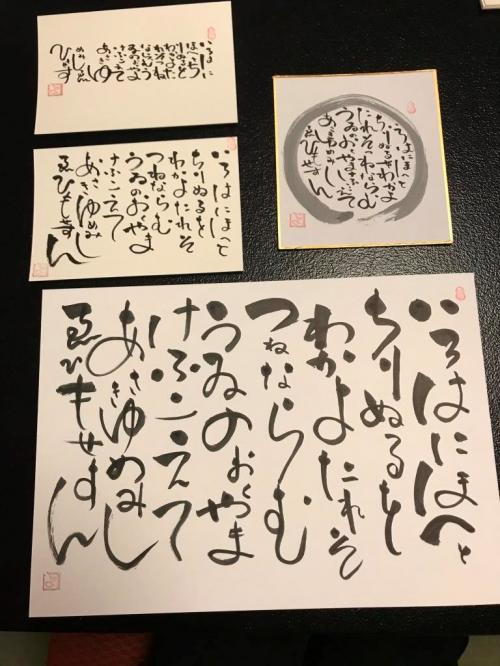 いろはに
ほへとち
りぬるを
わかよた
れそつね
ならむう
ゐのおくや
まけふこえて
あさきゆ
めみしゑ
ひもせす
いろはにほへと
ちりぬるをわかよ
たれそつねならむ
うゐのおくやまけふこえて
あさきゆめみし
ゑひもせすん
いろはにほへと
ちりぬるを
わかよたれそ
つねならむ
うゐのおくやま
けふこえて
あさきゆめみし
ゑひもせすん
いろはにほへと
ちりぬるを
わかよたれそ
つねならむ
うゐのおくやま
けふこえて
あさきゆめみし
ゑひもせすん